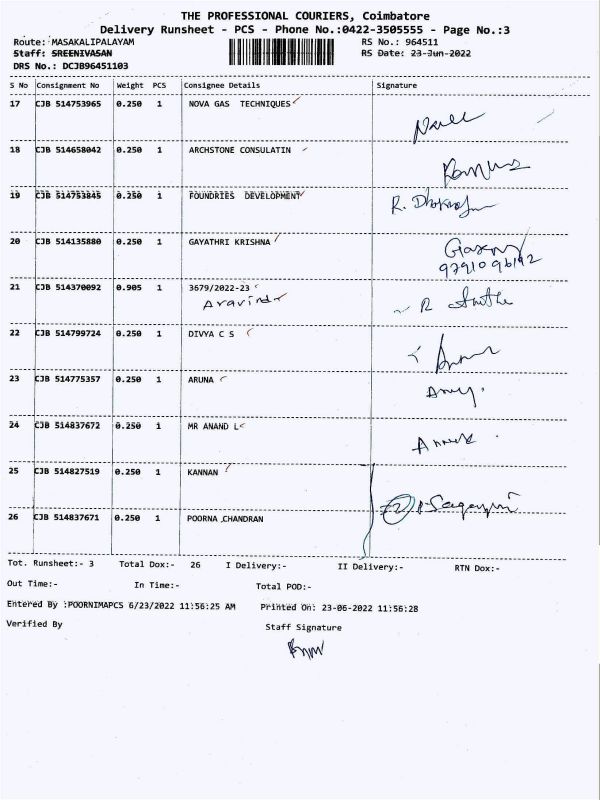 THE PROFESSIONAL COURIERS, Coimbatore
Delivery Runsheet - PCS - Phone No.:0422-3505555 - Page No.:3
Route: MASAKALIPALAYAM RS No.: 964511
Staff: SREENIVASAN RS Date: 23-Jun-2022
DRS No.: DCJB96451103
S No Consignment No Weight PCS Consignee Details Signature
17 CJB 514753965 0.250 1 NOVA GAS TECHNIQUES
18 CJB 514658042 0.250 1 ARCHSTONE CONSULATIN
19 CJB 514753845 0.250 1 FOUNDRIES DEVELOPMENT
20 CJB 514135880 0.250 1 GAYATHRI KRISHNA
9791096192
21 CJB 514370092 0.905 1 3679/2022-23
Aravind
22 CJB 514799724 0.250 1 DIVYA C S
23 CJB 514775357 0.250 1 ARUNA
24 CJB 514837672 0.250 1 MR ANAND L
25 CJB 514827519 0.250 1 KANNAN
26 CJB 514837671 0.250 1 POORNA CHANDRAN
Tot. Runsheet:- 3 Total Dox:- 26 I Delivery:- II Delivery:- RTN Dox:-
Out Time:- In Time:- Total POD:-
Entered By :POORNIMAPCS 6/23/2022 11:56:25 AM Printed On: 23-06-2022 11:56:28
Verified By Staff Signature